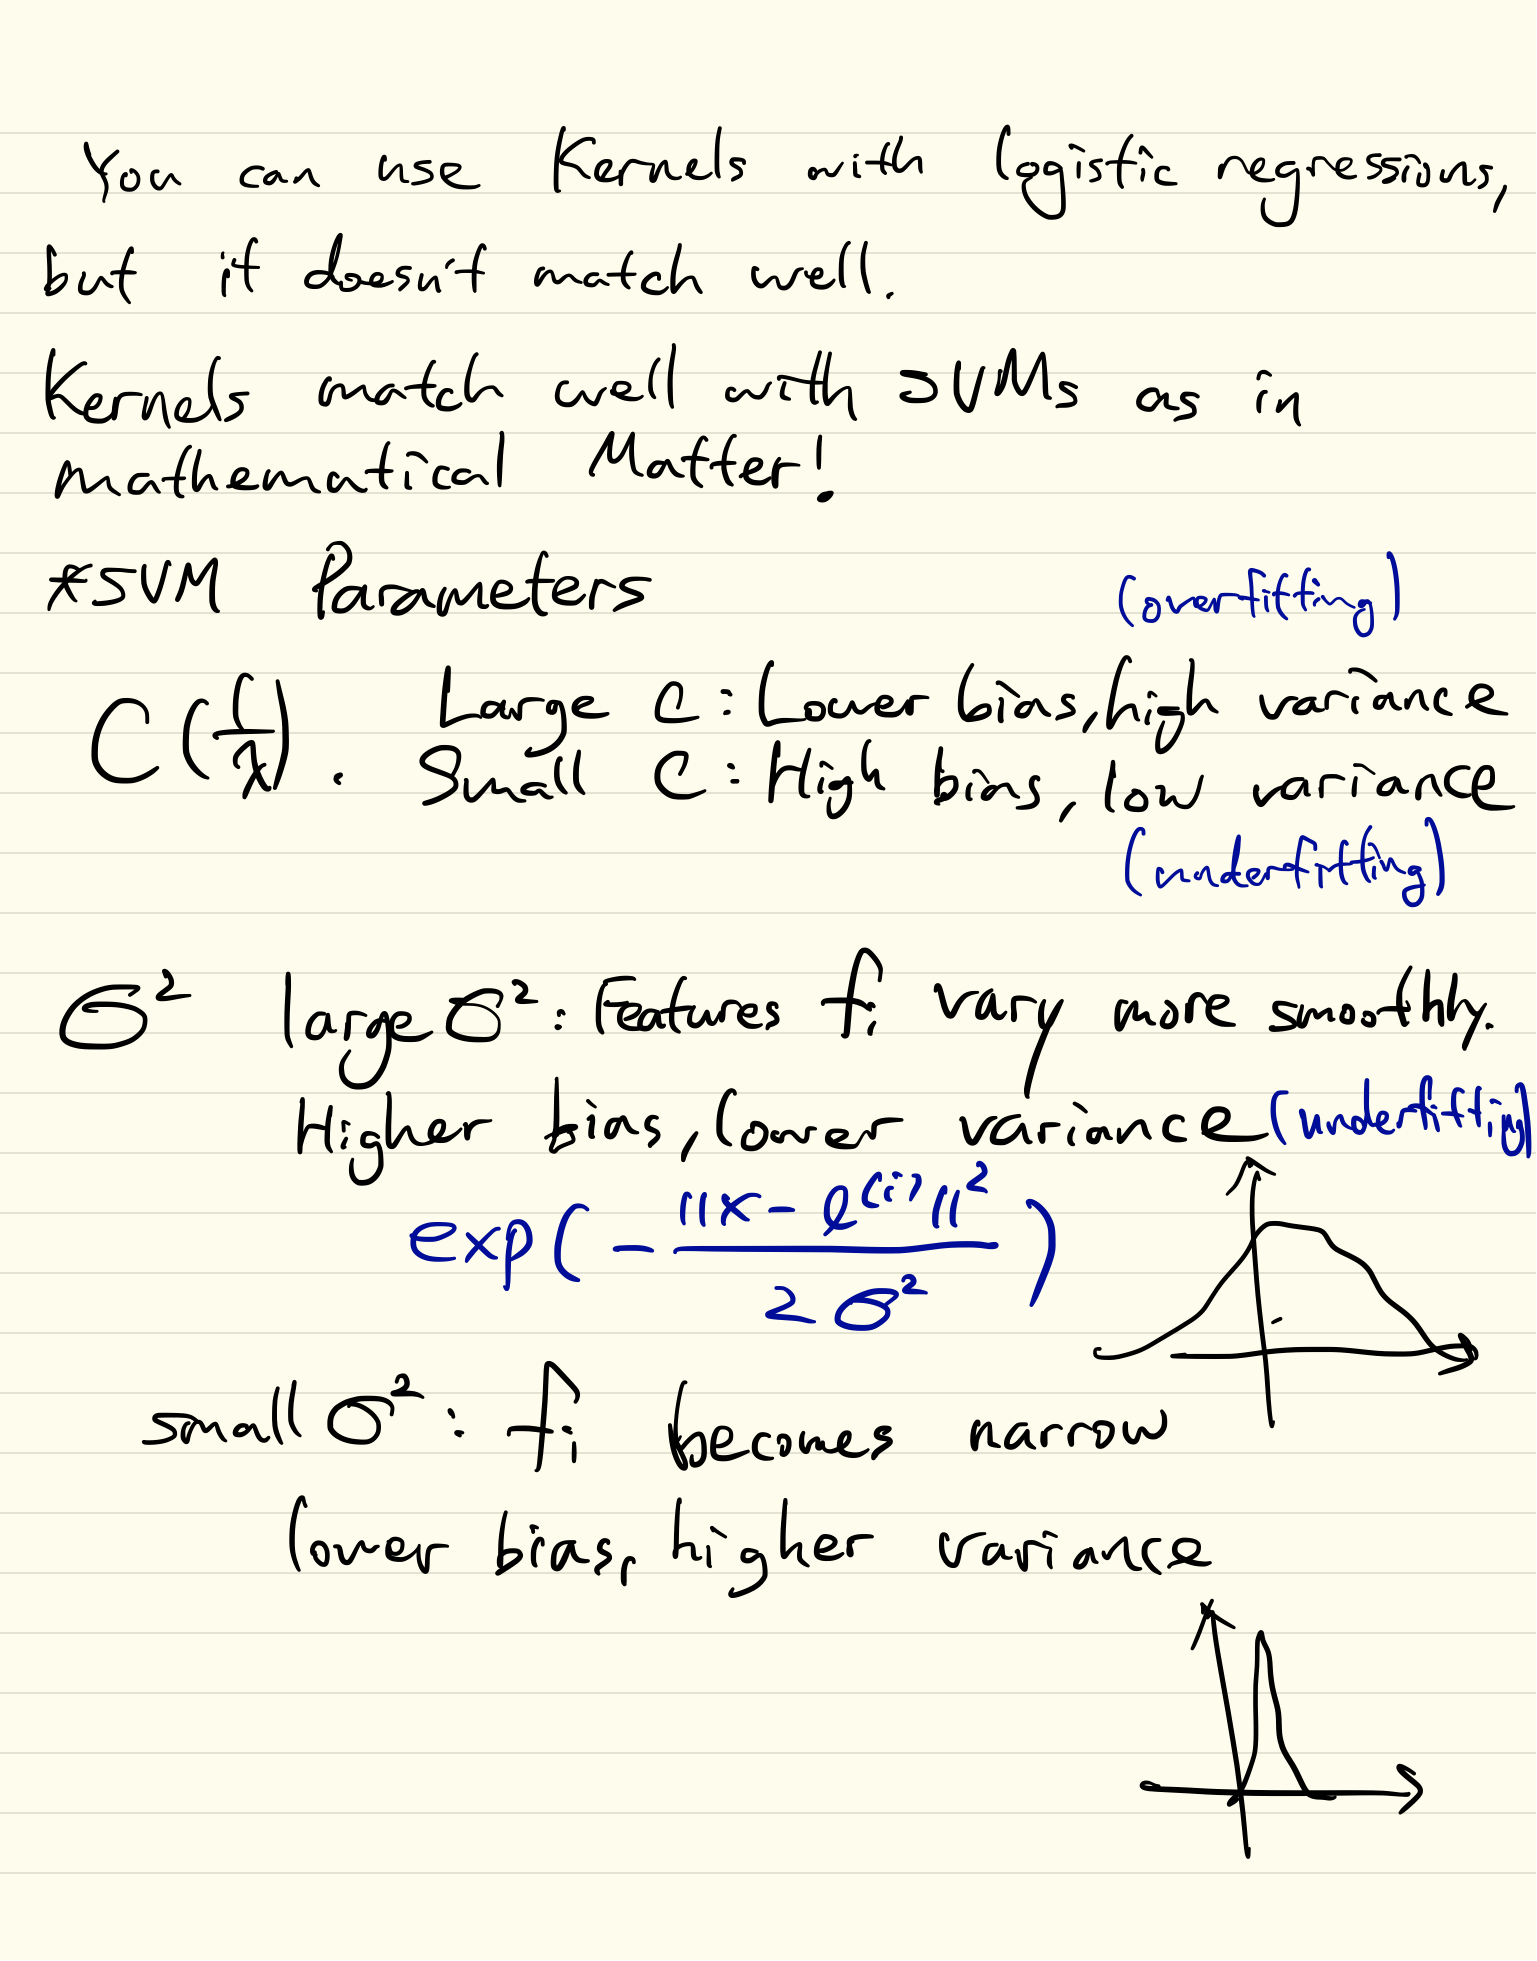 You can use Kernels with logistic regressions,
but it doesn't match well.
Kernels match well with SVMs as in
mathematical Matter!
*SVM Parameters (overfitting)
C (1/λ). Large C: Lower bias, high variance
Small C: High bias, low variance
(underfitting)
σ² large σ²: Features fi vary more smoothly.
Higher bias, lower variance (underfitting)
exp(- ||x - l^(i)||² / 2σ²)
small σ²: fi becomes narrow
lower bias, higher variance